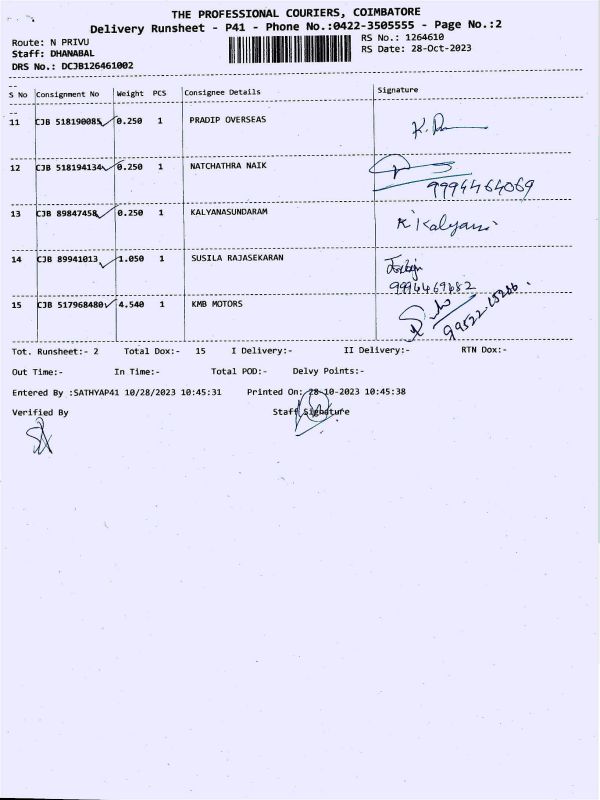 THE PROFESSIONAL COURIERS, COIMBATORE
Delivery Runsheet - P41 - Phone No.:0422-3505555 - Page No.:2
Route: N PRIVU
RS No.: 1264610
Staff: DHANABAL
RS Date: 28-Oct-2023
DRS No.: DCJB126461002
S No Consignment No Weight PCS Consignee Details Signature
11 CJB 518190085 0.250 1 PRADIP OVERSEAS
12 CJB 518194134 0.250 1 NATCHATHRA NAIK
9994464069
13 CJB 89847458 0.250 1 KALYANASUNDARAM
14 CJB 89941013 1.050 1 SUSILA RAJASEKARAN
15 CJB 517968480 4.540 1 KMB MOTORS
Tot. Runsheet:- 2 Total Dox:- 15 I Delivery:- II Delivery:- RTN Dox:-
Out Time:- In Time:- Total POD:- Delvy Points:-
Entered By :SATHYAP41 10/28/2023 10:45:31 Printed On: 28-10-2023 10:45:38
Verified By Staff Signature